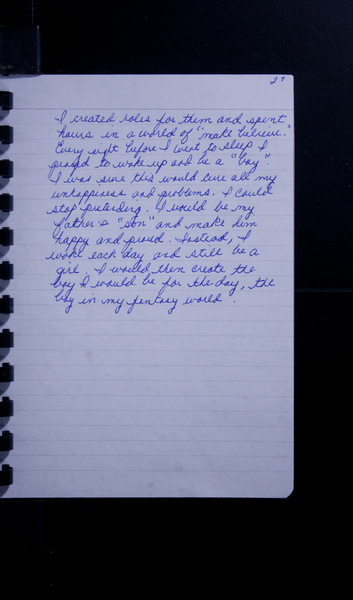 27
I created roles for them and spent
hours in a world of "make believe."
Every night before I went to sleep I
prayed to wake up and be a "boy".
I was sure this would cure all my
unhappiness and problems. I could
stop pretending. I would be my
father's "son" and make him
happy and proud. Instead, I
woke each day and still be a
girl. I would then create the
boy I would be for the day, the
boy in my fantasy world.